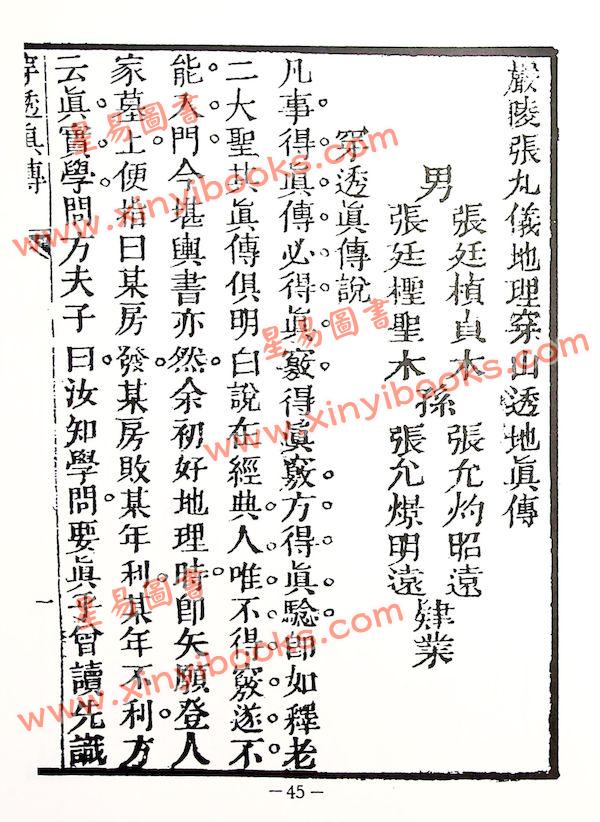 嚴陵張九儀地理穿山透地眞傳
男
張廷楨貞木
張廷檉聖木
孫
張允灼昭遠
張允燝明遠
肄業
穿透眞傳說
凡事得眞傳必得眞竅得眞竅方得眞驗卽如釋老
二大聖其眞傳俱明白說在經典人唯不得竅遂不
能入門今堪輿書亦然余初好地理時卽矢願登人
家墓上便指曰某房發某房敗某年利某年不利方
云眞實學問方夫子曰汝知學問要眞乎曾讀先識
穿透眞傳
一
星易圖書
www.xinyibooks.com
星易圖書
www.xinyibooks.com
星易圖書
www.xinyibooks.com
-45-